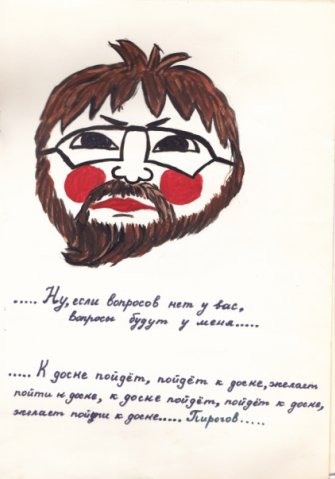 ..... Ну, если вопросов нет у вас,
вопросы будут у меня.....
..... К доске пойдёт, пойдёт к доске, желает
пойти к доске, к доске пойдёт, пойдёт к доске,
желает пойти к доске..... Пирогов.....